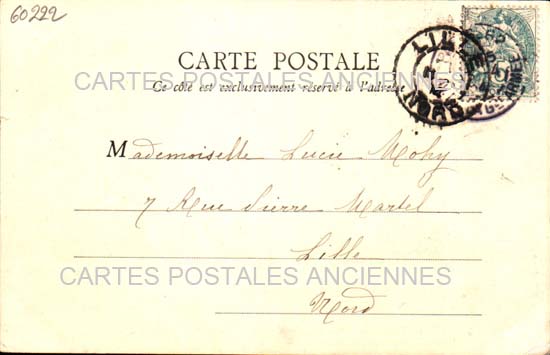 60222
CARTE POSTALE
CARTES POSTALES ANCIENNES
Ce côté est exclusivement réservé à l'adresse
LILLE
NORD
Mademoiselle Lucie Mohy
7 Rue Pierre Martel
Lille
CARTES POSTALES ANCIENNES
Nord